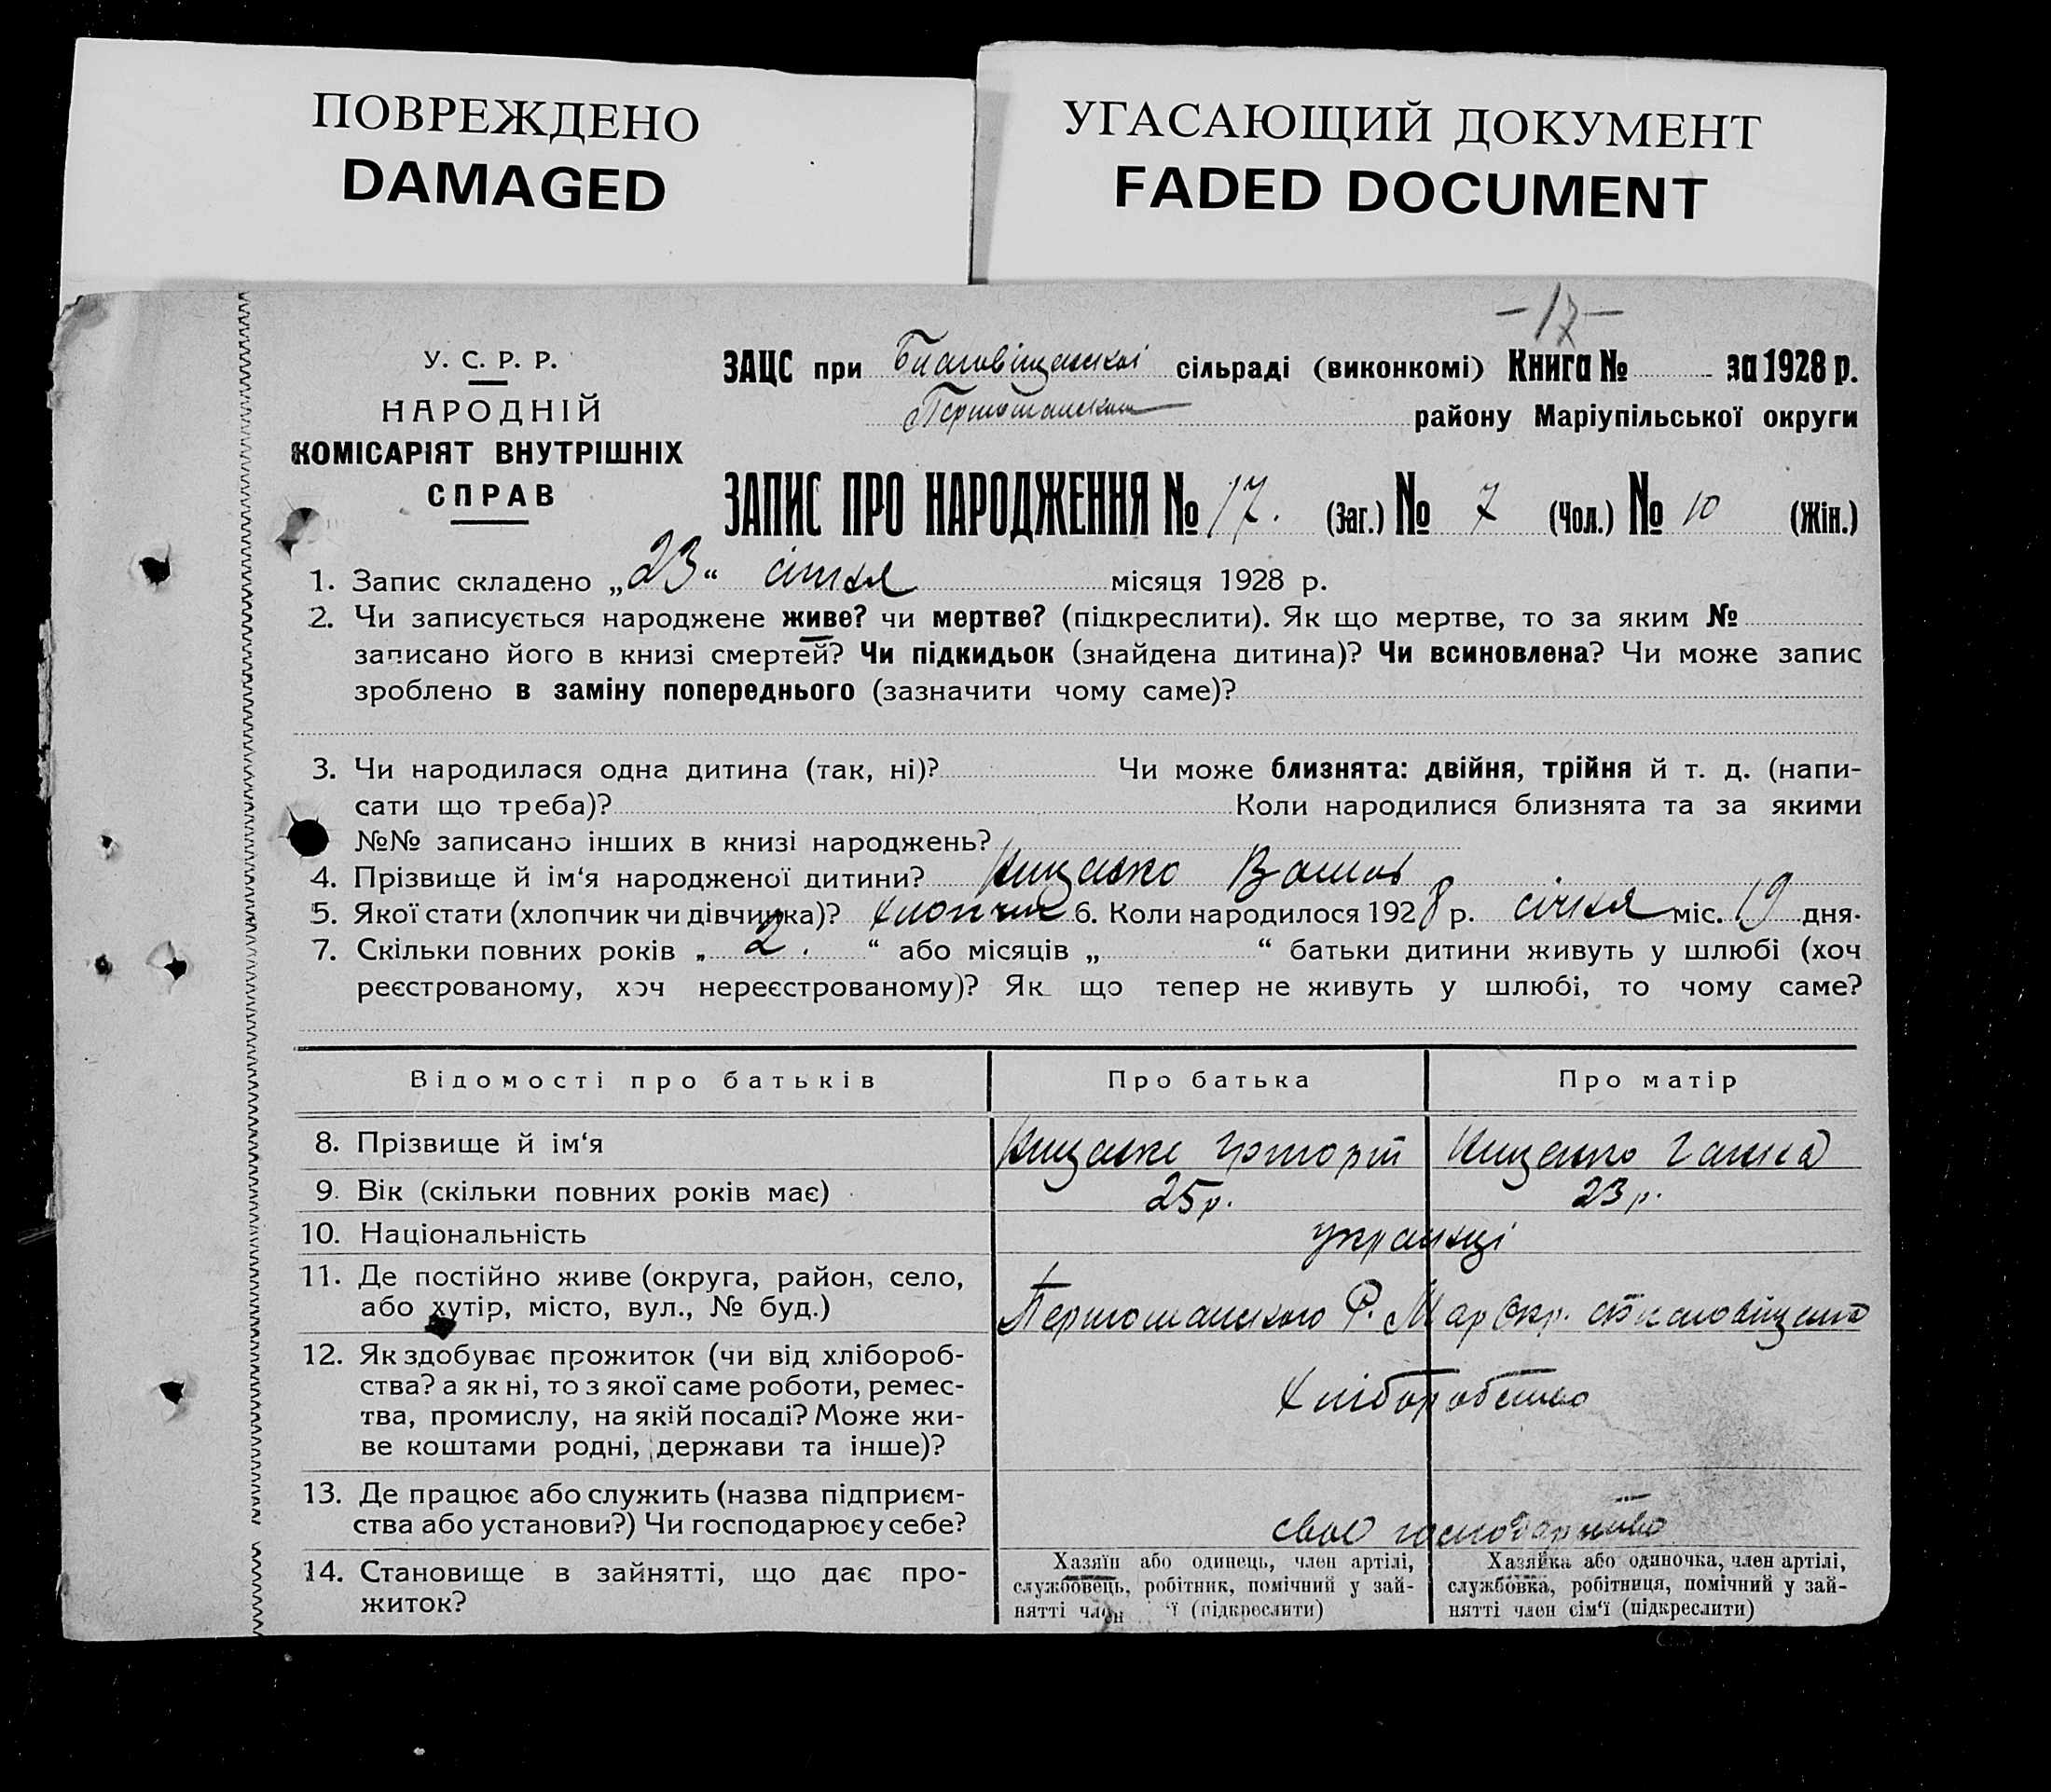 ПОВРЕЖДЕНО
DAMAGED
УГАСАЮЩИЙ ДОКУМЕНТ
FADED DOCUMENT
-17-
У. С. Р. Р.
НАРОДНІЙ
КОМІСАРІЯТ ВНУТРІШНІХ
СПРАВ
ЗАЦС при Благовіщанскі сільраді (виконкомі) Книга № за 1928 р.
району Маріупільської округи
ЗАПИС ПРО НАРОДЖЕННЯ № 17. (Заг.) № 7 (Чол.) № 10 (Жін.)
1. Запис складено „23“ січня місяця 1928 р.
2. Чи записується народжене живе? чи мертве? (підкреслити). Як що мертве, то за яким №
записано його в книзі смертей? Чи підкидьок (знайдена дитина)? Чи всиновлена? Чи може запис
зроблено в заміну попереднього (зазначити чому саме)?
3. Чи народилася одна дитина (так, ні)? Чи може близнята: двійня, трійня й т. д. (напи-
сати що треба)? Коли народилися близнята та за якими
№№ записано інших в книзі народжень?
4. Прізвище й ім‘я народженої дитини? Кищенко
5. Якої стати (хлопчик чи дівчинка)? хлопчик 6. Коли народилось 1928 р. січня міс. 19 дня.
7. Скільки повних років „ 2. “ або місяців „ “ батьки дитини живуть у шлюбі (хоч
реєстрованому, хоч нереєстрованому)? Як що тепер не живуть у шлюбі, то чому саме?
Відомості про батьків Про батька Про матір
8. Прізвище й ім‘я Кищенко Григорій Кищенко Ганна
9. Вік (скільки повних років має) 25 р. 23 р.
10. Національність українці
11. Де постійно живе (округа, район, село,
або хутір, місто, вул., № буд.) Р. Мар Окр.
12. Як здобуває прожиток (чи від хлібороб-
ства? а як ні, то з якої саме роботи, ремес-
тва, промислу, на якій посаді? Може жи-
ве коштами родні, держави та інше)?
хліборобство
13. Де працює або служить (назва підприєм-
ства або установи?) Чи господарює у себе?
своє господарство
14. Становище в зайнятті, що дає про-
житок?
Хазяїн або одинець, член артілі,
службовець, робітник, помічний у зай-
нятті член ‘ї (підкреслити)
Хазяйка або одиночка, член артілі,
службовка, робітниця, помічний у зай-
нятті член сім‘ї (підкреслити)